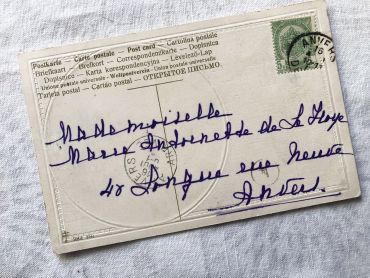 Postkarte – Carte postale – Post card – Cartolina postale
Briefkaart – Brefkort – Correspondenzkarte – Dopisnica
Dopisnice – Karta korespondencyjna – Levelező-Lap
Union postale universelle – Weltpostverein – Unione postale universale
Tarjeta postal – Cartão postal – ОТКРЫТОЕ ПИСЬМО.
ANVERS
Mademoiselle
Marie Antoinette de La
42 Longue rue Neuve
Anvers